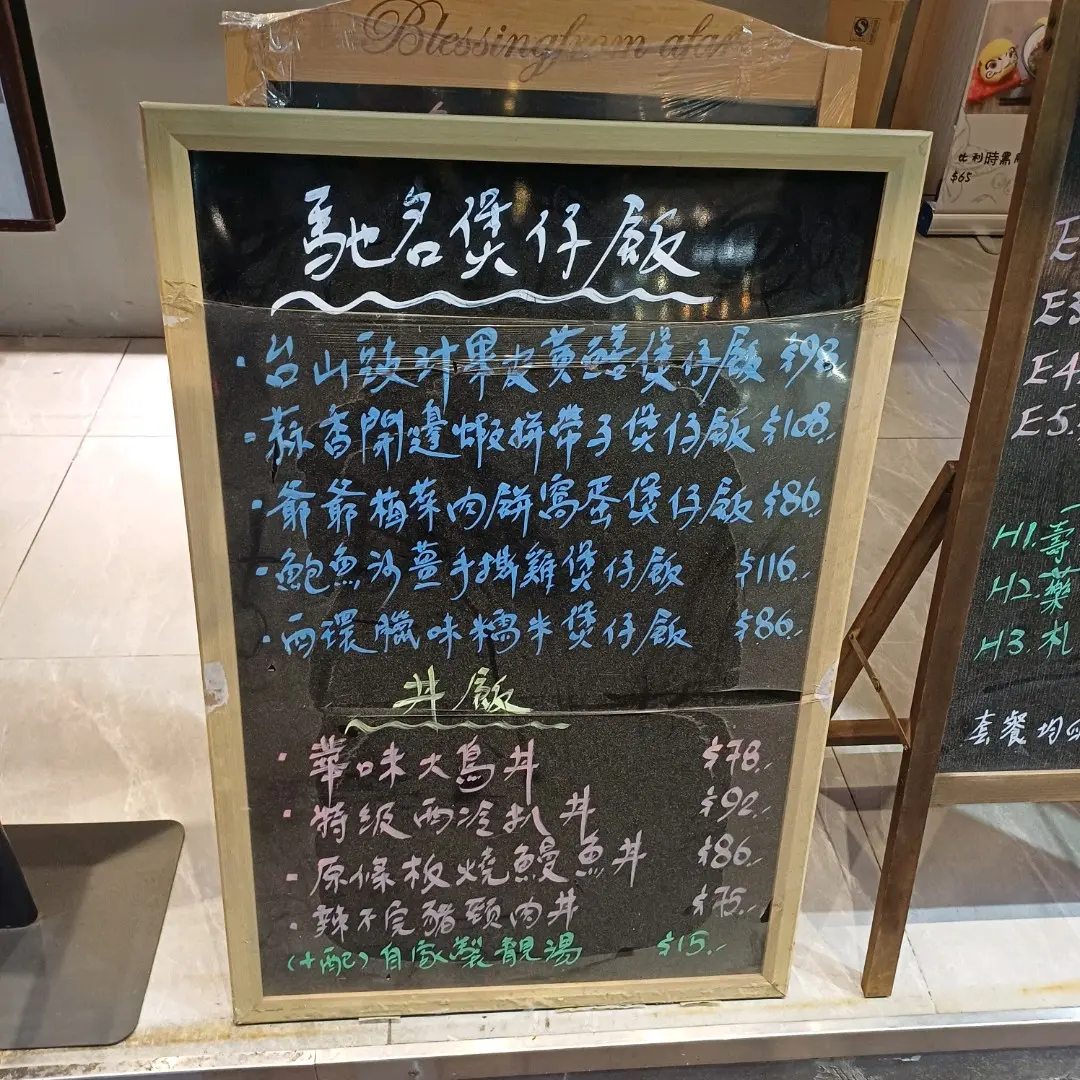 Blessing from afar
比利時黑
$65
馳名煲仔飯
· 台山頭汁果皮黃鱔煲仔飯 $98
· 蒜香開邊蝦拼帶子煲仔飯 $108.-
· 爺爺梅菜肉餅窩蛋煲仔飯 $86.-
· 鮑魚沙薑手撕雞煲仔飯 $116.-
· 西環臘味糯米煲仔飯 $86.-
丼飯
· 華味大鳥丼 $78.-
· 特級西冷扒丼 $92.-
· 原條板燒鰻魚丼 $86.-
· 辣不完豬頸肉丼 $75.-
(+配) 自家製靚湯 $15.-
E4
E5.
H1. 壽
H2. 藥
H3. 札
套餐均